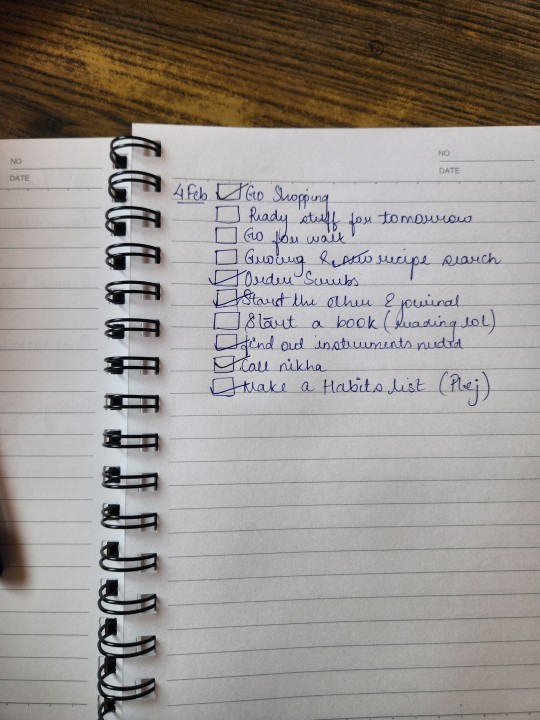 NO
DATE
NO
DATE
4 Feb Go Shopping
Ready stuff for tomorrow
Go for walk
& recipe search
Order Scrubs
Start the other 2 journal
Start a book (reading lol)
find out instruments needed
Call nikha
Make a Habits list